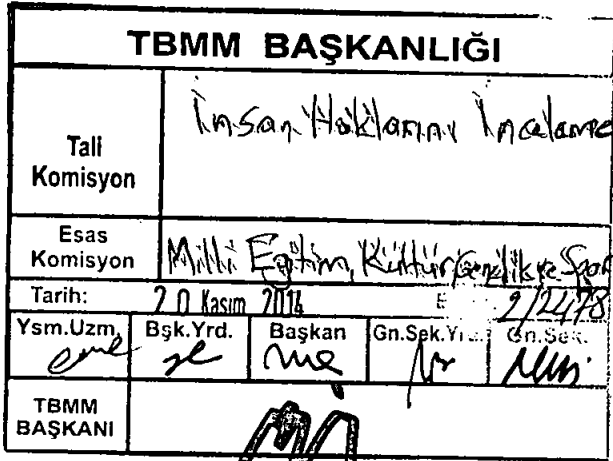 TBMM BAŞKANLIĞI
Tali Komisyon
İnsan Haklarını İnceleme
Esas Komisyon
Milli Eğitim, Kültür, Gençlik ve Spor
Tarih: 20 Kasım 2014 2/2478
Ysm.Uzm. Bşk.Yrd. Başkan Gn.Sek.Yrd. Gn.Sek.
TBMM BAŞKANI